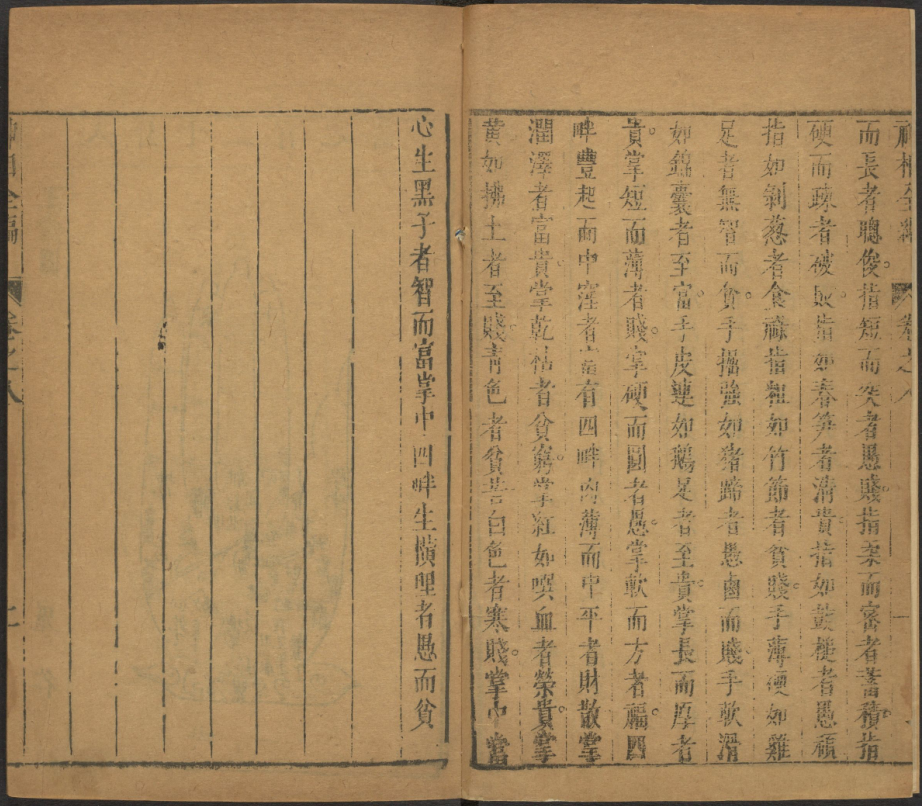 神相全編 卷之八
而長者聰俊指短而突者愚賤指柔而密者蓄積指
硬而疎者破敗指如春笋者清貴指如鼓槌者愚頑
指如剝葱者食祿指粗如竹節者貧賤手薄硬如雞
足者無智而貧手攝強如猪蹄者愚鹵而賤手軟滑
如錦囊者至富手皮連如鵝足者至貴掌長而厚者
貴掌短而薄者賤掌硬而圓者愚掌軟而方者福四
畔豐起而中窪者富有四畔肉薄而中平者財散掌
潤澤者富貴掌乾枯者貧窮掌紅如噀血者榮貴掌
黃如拂土者至賤青色者貧苦白色者寒賤掌中當
心生黑子者智而富掌中四畔生橫理者愚而貧